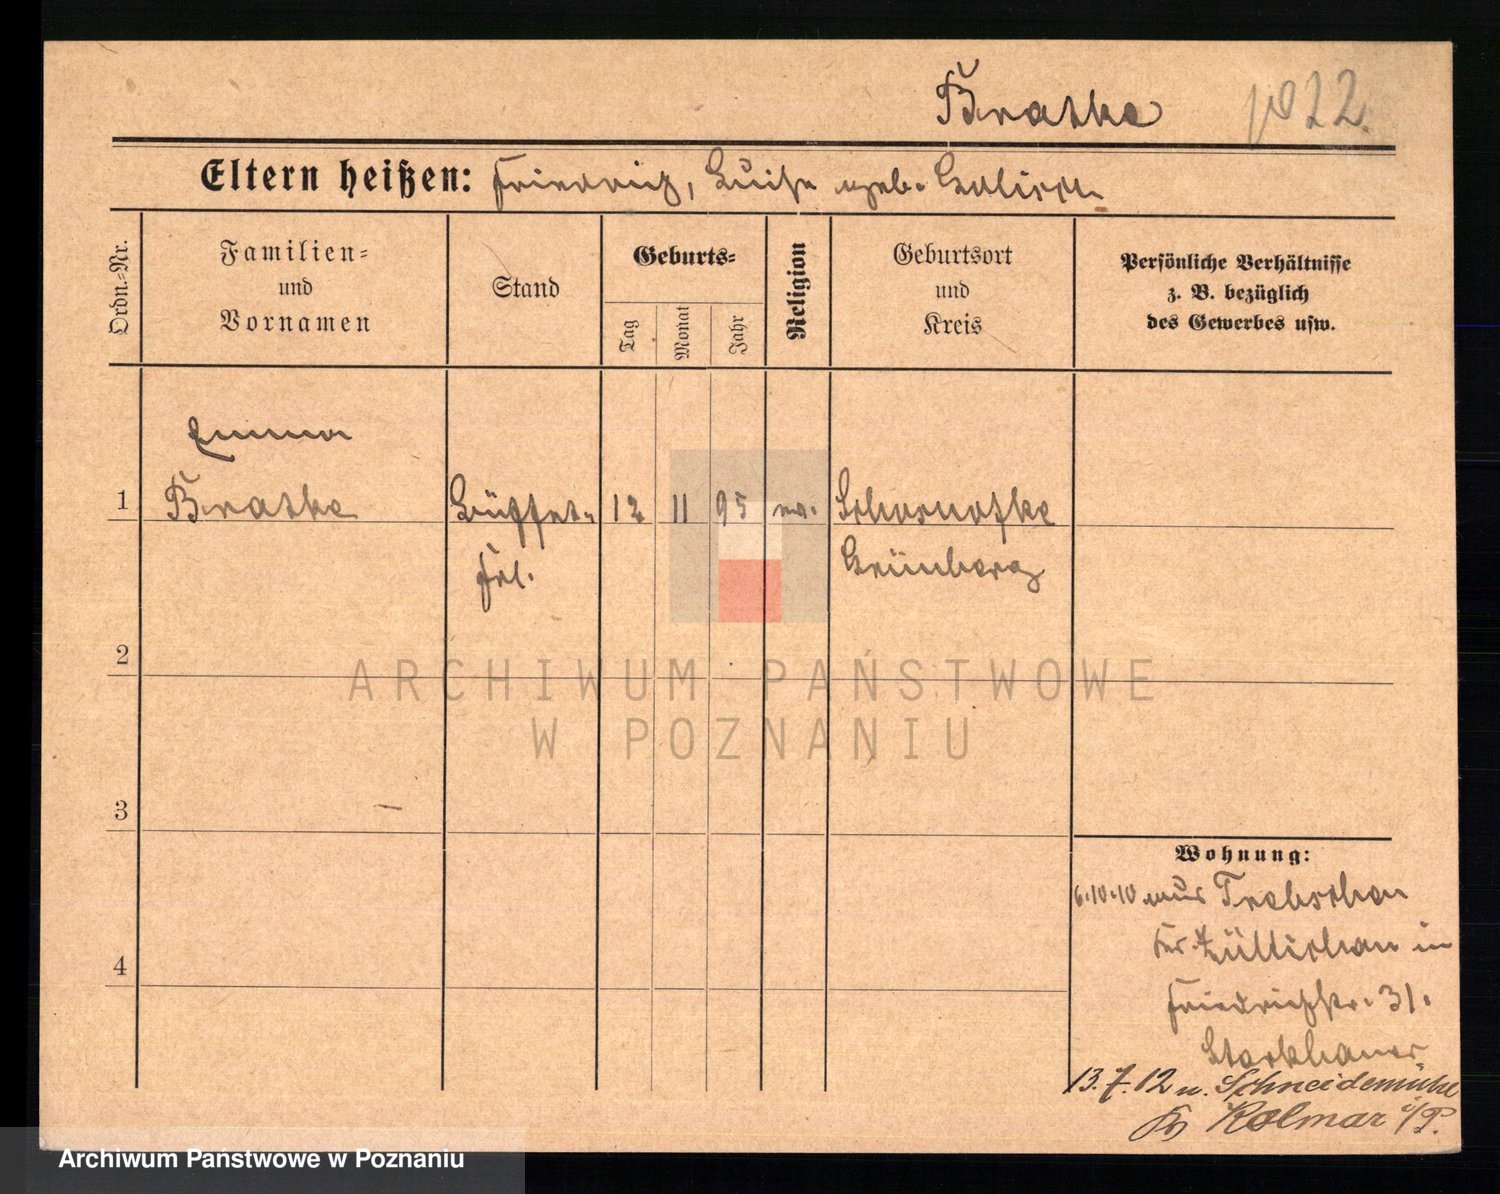 Bratke 1022.
Eltern heißen: Friedrich, Luise geb.
Ordn.-Nr.
Familien-
und
Vornamen
Stand
Geburts-
Tag
Monat
Jahr
Religion
Geburtsort
und
Kreis
Persönliche Verhältnisse
z. B. bezüglich
des Gewerbes usw.
Emma
1 Bratke Büffet- 12 11 95 ev.
Frl. Grünberg
2
3
4
Wohnung:
6.10.10 aus Trebschen
Kr. Züllichau in
Friedrichstr. 31.
13.7.12 n. Schneidemühl
Kr Kolmar i/P.
ARCHIWUM PAŃSTWOWE
W POZNANIU
Archiwum Państwowe w Poznaniu